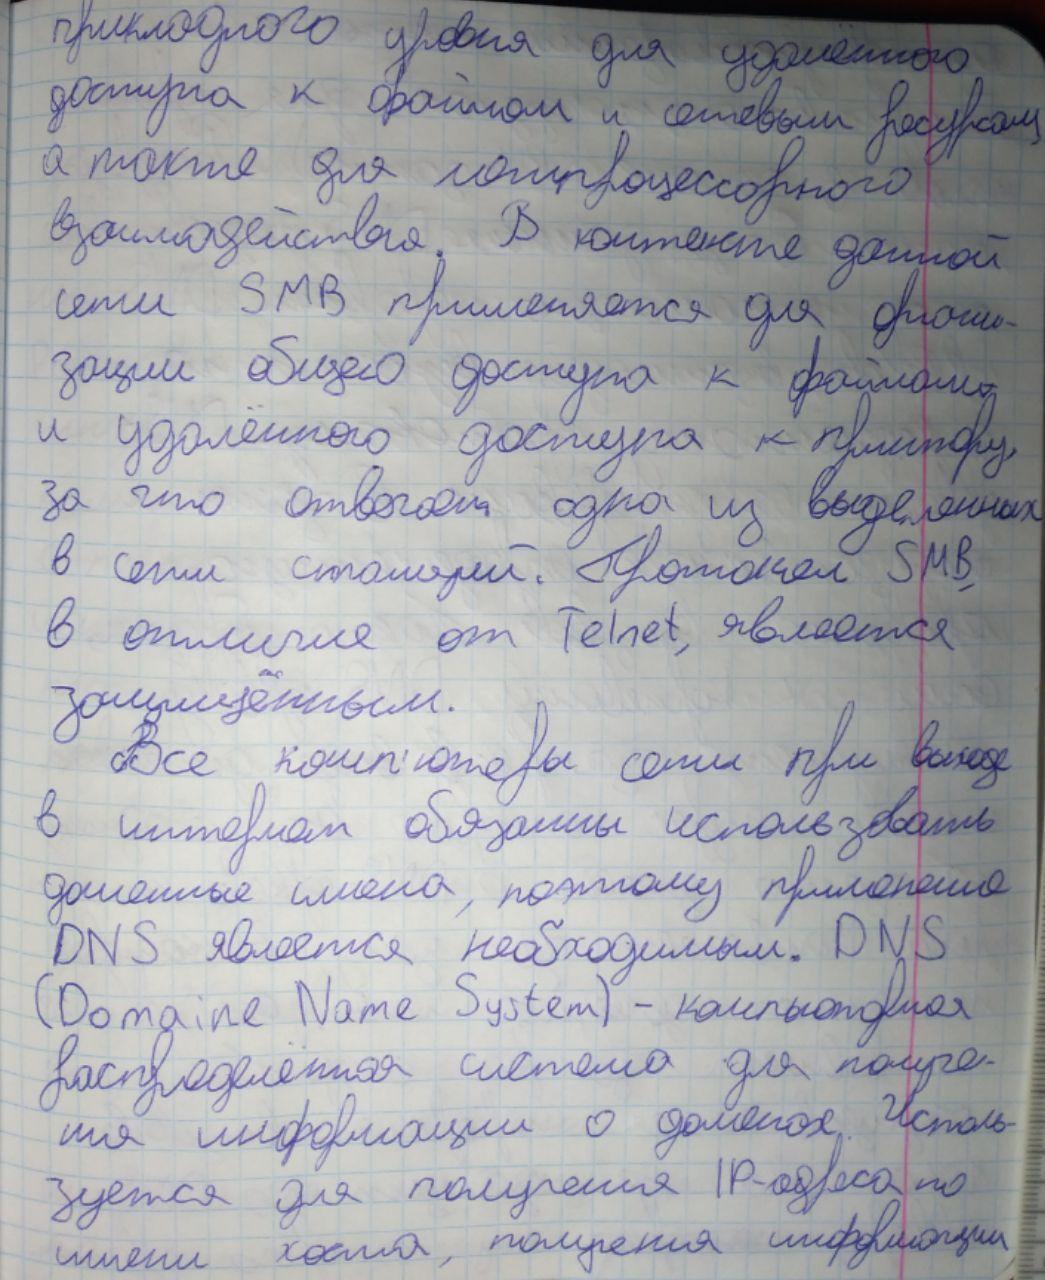 прикладного уровня для удалённого
доступа к файлам и сетевым ресурсам,
а также для межпроцессорного
взаимодействия. В контексте данной
сети SMB применяется для органи-
зации общего доступа к файлами
и удалённого доступа к принтеру,
за что отвечает одна из выделенных
в сети станций. Протокол SMB,
в отличие от Telnet, является
защищённым.
Все компьютеры сети при выходе
в интернет обязанны использовать
доменные имена, поэтому применение
DNS является необходимым. DNS
(Domaine Name System) - компьютерная
распределённая система для получе-
ния информации о доменах. Исполь-
зуется для получения IP-адреса по
имени хоста, получения информации